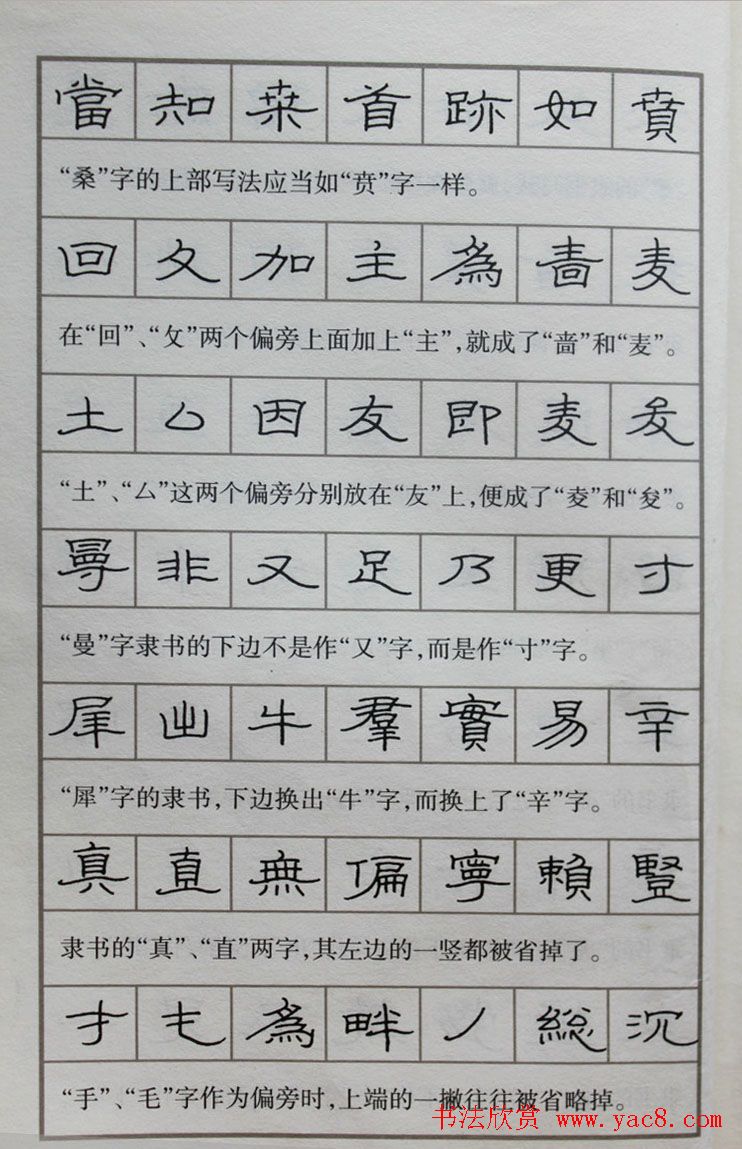 當知桒首跡如賁
“桑”字的上部写法应当如“贲”字一样。
回夂加主為啬麦
在“回”、“攵”两个偏旁上面加上“主”,就成了“啬”和“麦”。
土厶因友即
“土”、“厶”这两个偏旁分别放在“友”上,便成了“夌”和“夋”。
非又足乃更寸
“曼”字隶书的下边不是作“又”字,而是作“寸”字。
出牛羣實易辛
“犀”字的隶书,下边换出“牛”字,而换上了“辛”字。
真直無偏寧賴豎
隶书的“真”、“直”两字,其左边的一竖都被省掉了。
才乇為畔丿総沉
“手”、“毛”字作为偏旁时,上端的一撇往往被省略掉。
书法欣赏 www.yac8.com